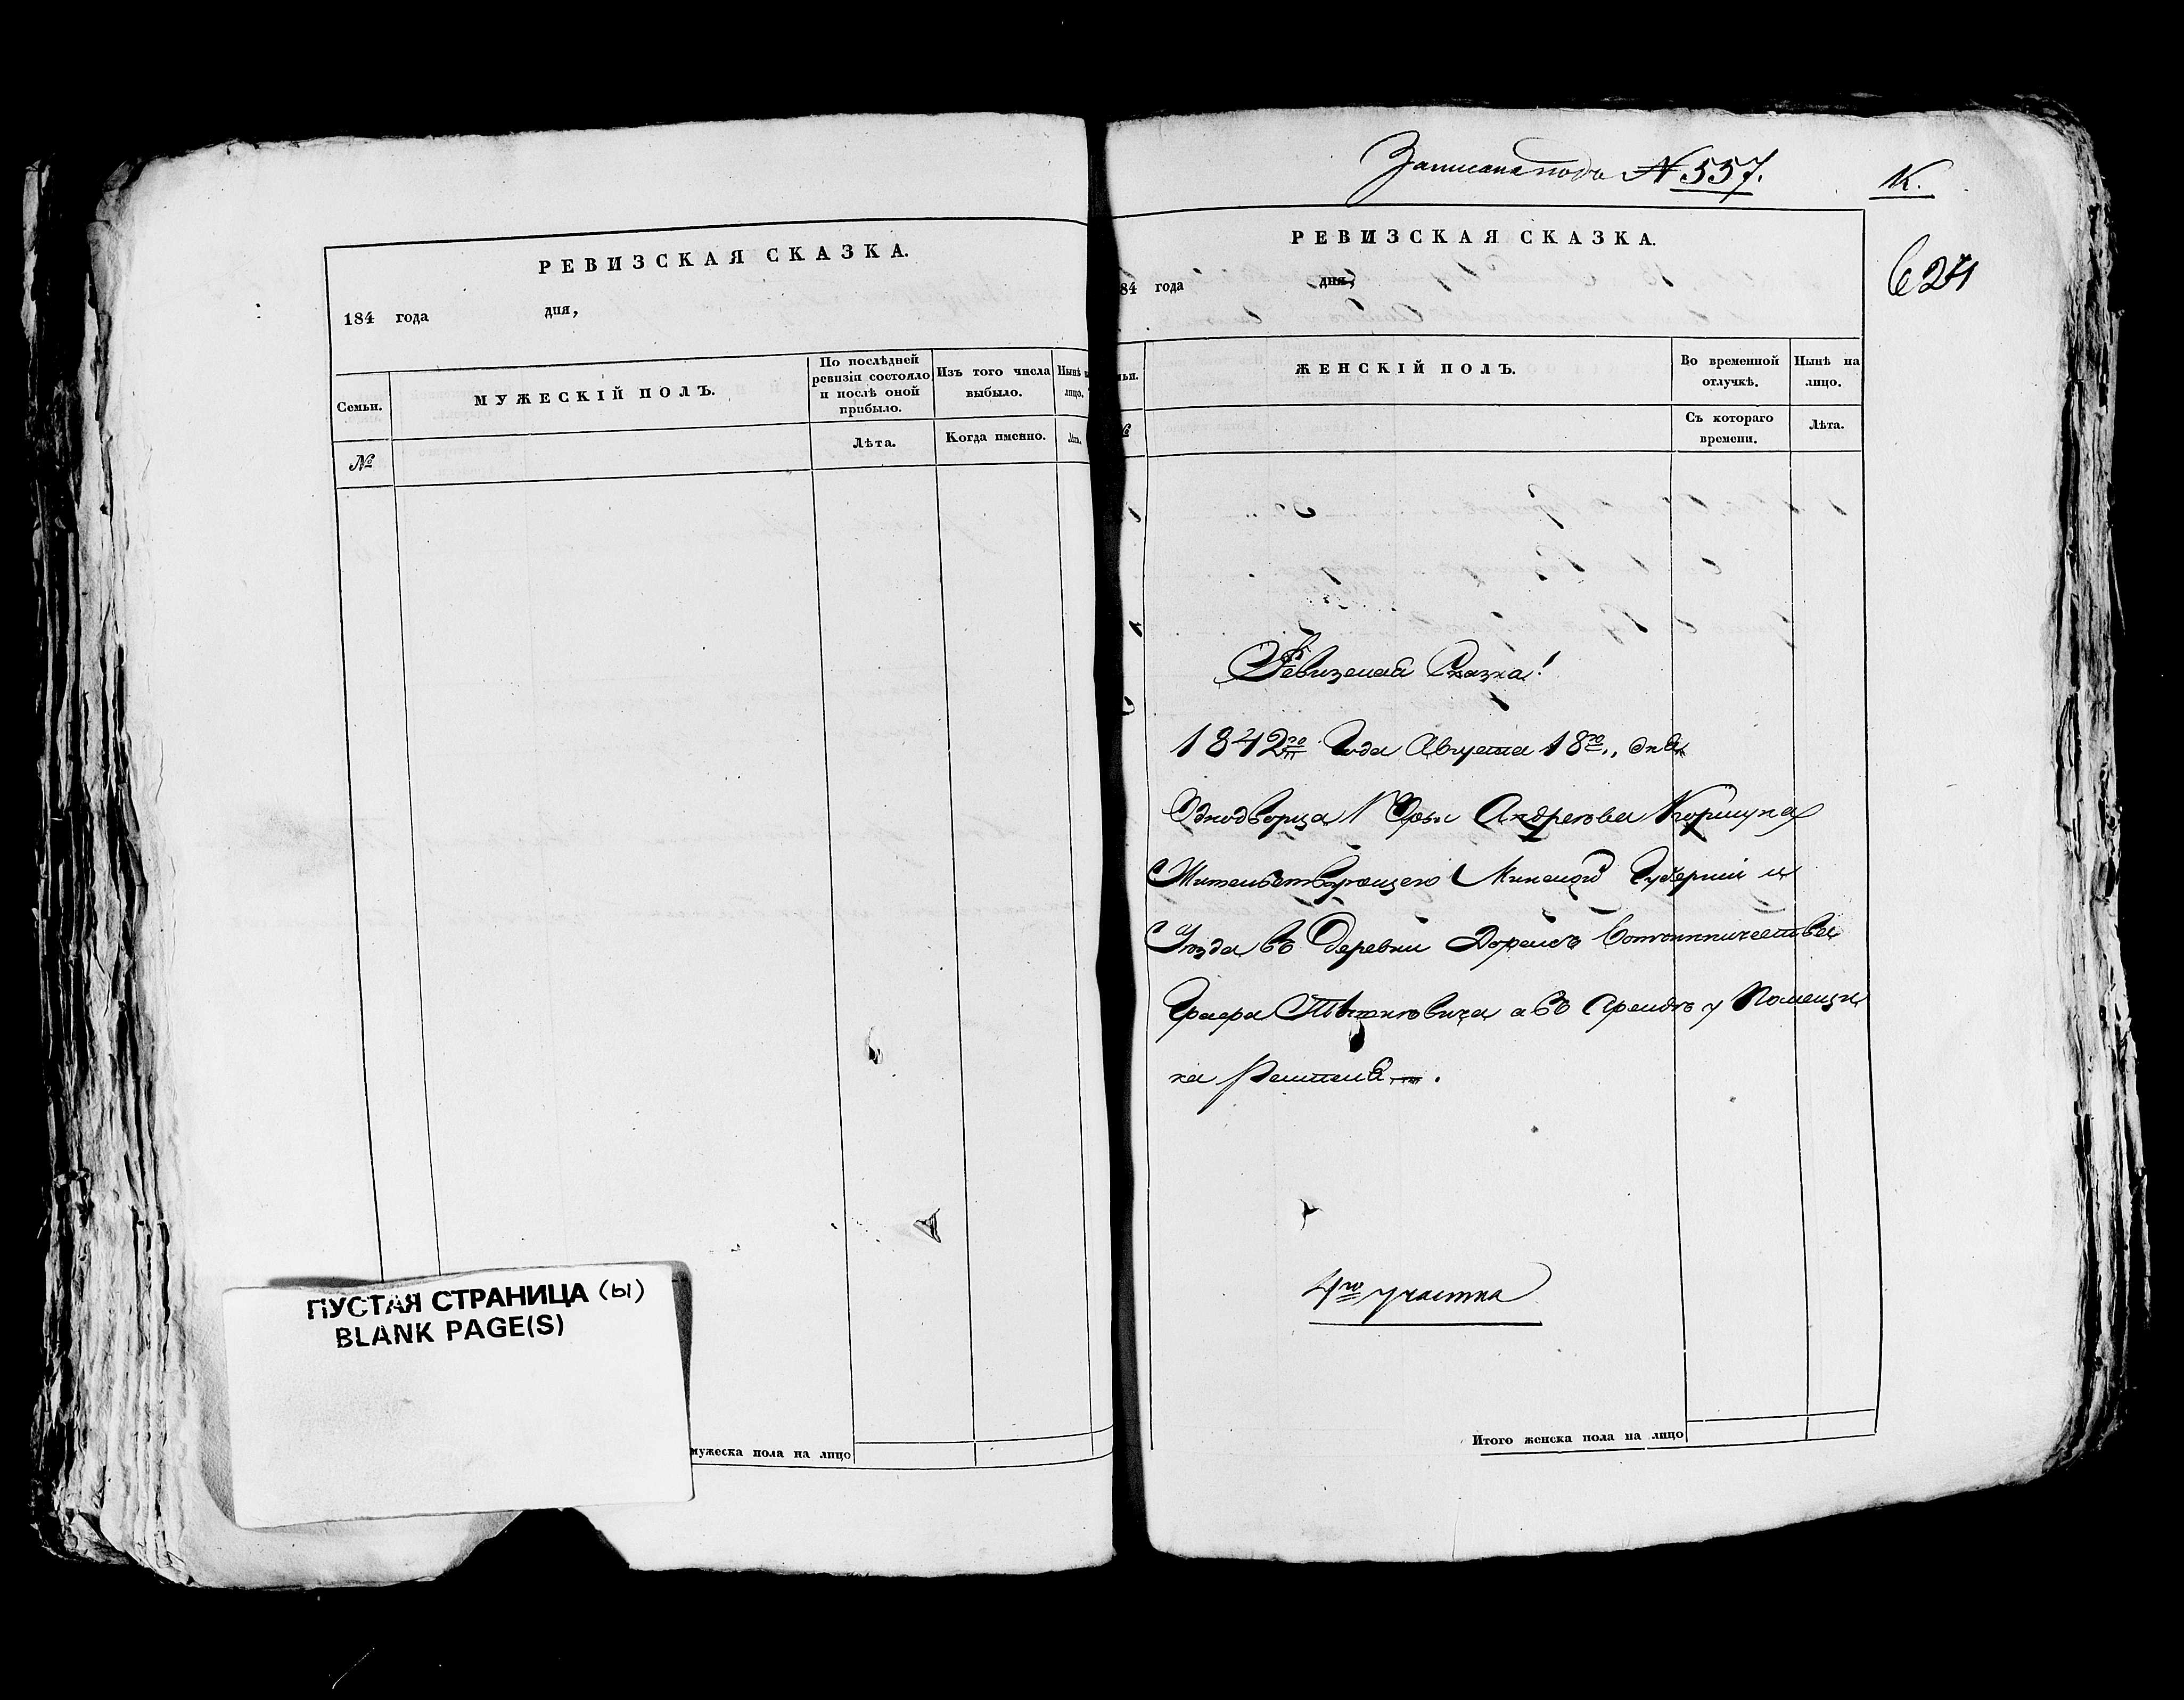 РЕВИЗСКАЯ СКАЗКА.
184 года дня,
Семьи.
МУЖЕСКІЙ ПОЛЪ.
По послѣдней ревизіи состояло и послѣ оной прибыло.
Изъ того числа выбыло.
Нынѣ
лицо.
№
Лѣта.
Когда именно.
Лѣта.
ПУСТАЯ СТРАНИЦА (Ы)
BLANK PAGE(S)
мужеска пола на лицо
Записана подъ № 557.
К.
РЕВИЗСКАЯ СКАЗКА.
84 года дня,
ЖЕНСКІЙ ПОЛЪ.
Во временной отлучкѣ.
Нынѣ на лицо.
Съ котораго времени.
Лѣта.
Ревизская Сказка!
1842го Года Августа 18го дня
Однодворца Андреева Коршука
Жительствующего Минской Губерніи и
Уѣзда въ Деревни
Графа а въ Арендѣ у Помещи
ка
4го участка
Итого женска пола на лицо